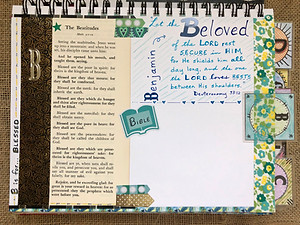 B is for... BLESSED
B
The Beatitudes
Seeing the multitudes, Jesus went
up into a mountain; and when he was
set, his disciples came unto him:
And he opened his mouth, and
taught them, saying,
Blessed are the poor in spirit: for
theirs is the kingdom of heaven.
Blessed are they that mourn: for
they shall be comforted.
Blessed are the meek: for they shall
inherit the earth.
Blessed are they which do hunger
and thirst after righteousness: for they
shall be filled.
Blessed are the merciful: for they
shall obtain mercy.
Blessed are the pure in heart: for
they shall see God.
Blessed are the peacemakers: for
they shall be called the children of
God.
Blessed are they which are perse-
cuted for righteousness' sake: for
theirs is the kingdom of heaven.
Blessed are ye, when men shall re-
vile you, and persecute you, and shall
say all manner of evil against you
falsely, for my sake.
Rejoice, and be exceeding glad: for
great is your reward in heaven: for so
persecuted they the prophets which
were before you.
BIBLE
Benjamin
Let the Beloved
of the LORD rest
SECURE in HIM,
for He shields him all
day long, and the one
the LORD loves RESTS
between His shoulders.
Deuteronomy 33:12
D
C